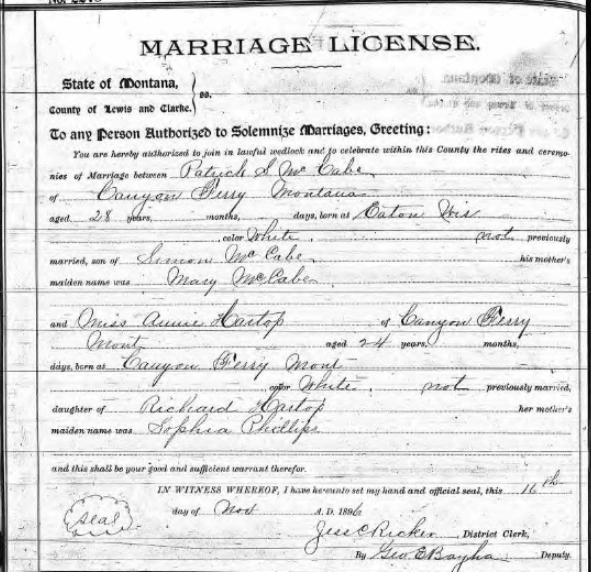 MARRIAGE LICENSE.
State of Montana,
ss.
County of Lewis and Clarke.
To any Person Authorized to Solemnize Marriages, Greeting:
You are hereby authorized to join in lawful wedlock and to celebrate within this County the rites and ceremo-
nies of Marriage between Patrick S. McCabe
of Canyon Ferry Montana
aged 28 years, months, days, born at Eaton Wis
, color White, not previously
married, son of Simon McCabe his mother's
maiden name was Mary McCabe
and Miss Annie Hartop of Canyon Ferry
Mont aged 24 years, months,
days, born at Canyon Ferry Mont
color White, not previously married,
daughter of Richard Hartop her mother's
maiden name was Sophia Phillips
and this shall be your good and sufficient warrant therefor.
IN WITNESS WHEREOF, I have hereunto set my hand and official seal, this 16th
seal
day of Nov A. D. 1896
Jess C Ricker District Clerk,
By Geo. E Bayha Deputy.